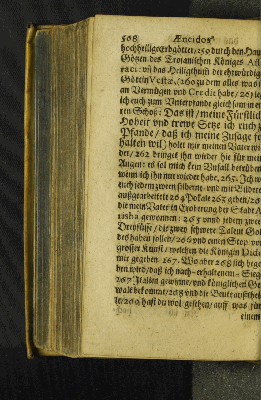 508 Æneidos
hochheilige Erbgötter/259 durch den Hau
Götzen des Trojanischen Königes Aſſ
raci: uñ das Heiligthuñ der ehrwürdigẽ
Göttin Veſtæ, (260 zu dem alles was
an Vermügen und Credit habe/261 le
ich euch zum Unterpfande gleich ſam in e
ren Schoß: Das iſt/meine Fürſtlich
Hoheit und trewe Setze ich euch z
Pfande/daß ich meine Zuſage fe
halten wil) holet mir meinen Vater wi
der/262 bringet ihn wieder hie für mein
Augen: es ſol mich kein Unfall betrüben
wenn ich ihn nur wieder habe. 263. Ich w
euch jedem zween ſilberne und mit Bildere
außgearbeitete 264 Pokale 263 geben/26
die mein Vater in Eroberung der Stadt A
risba gewonnen: 265 und jedem zwee
Dreyfüſſe/die zwey ſchwere Talent Gol
des haben ſollen/266 und einen Stop von
groſſer Kunſt/welchen die Königin Dido
mir gegeben. 267. Wo aber 268 ſich bege
ben wird/daß ich nach-erhaltenem-Siege
267 Italien gewinne/und Königlicher Ge
walt bekommet/268 und die Beute außthei
le/269 haſt du wol geſehen/auff was für
einem